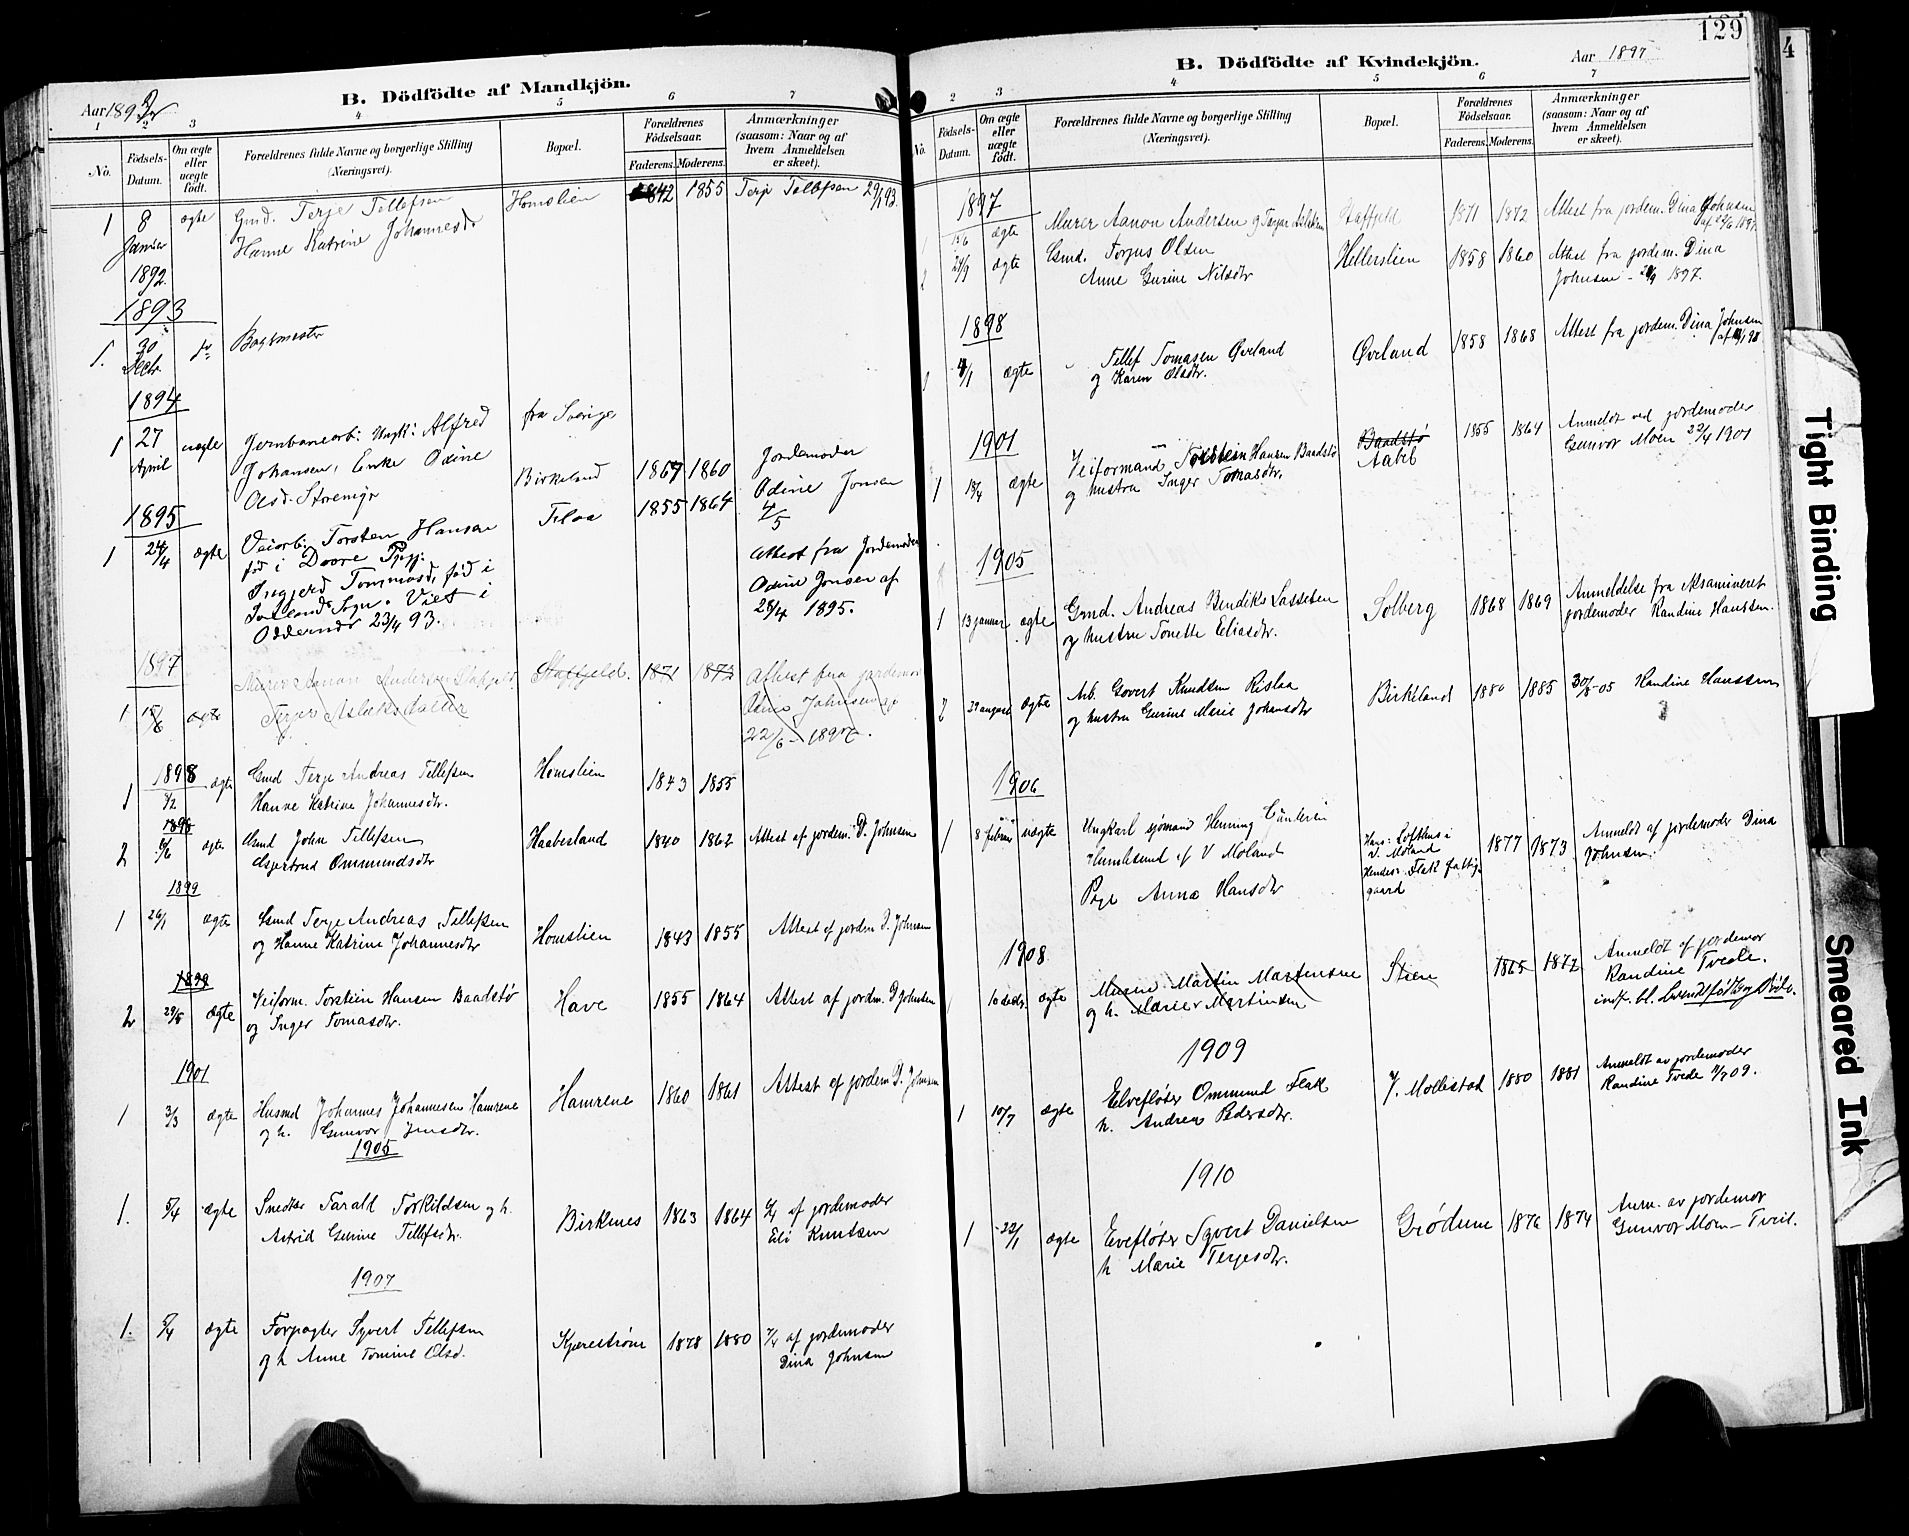 129
4
Aar 1892
B. Dödfödte af Mandkjön.
1 2 3 4 5 6 7
No.
Födsels-Datum.
Om ægte eller uægte födt.
Forældrenes fulde Navne og borgerlige Stilling (Næringsvei).
Bopæl.
Forældrenes Födselsaar.
Faderens. Moderens.
Anmærkninger (saasom: Naar og af hvem Anmeldelsen er skeet).
1 8 ægte Gmd. Terje Tellefsen Homslien 1842 1855 Terje Tellefsen 29/1 93.
Januar Hanne Katrine Johannesdr
1892
1893
1. 30 Decbr.
1894
1 27 uægte Jernbanearb: Ungk: Alfred fra Sverige
April Johansen, Enke Odine Birkeland 1867 1860 Jordemoder
Olsd. Storemyr Odine Jonsen 4/5
1895
1 24/4 ægte Veiarb: Torsten Hansen 1855 1864
fød i
Ingjerd Tommasd, fød i Attest fra Jordemoder
Sogn. Viet i Odine Jonsen af
Oddernes 23/4 93. 28/4 1895.
1897
1 15/6 ægte Murer Aanon Andersen Stoffjeld. 1871 1872 Attest fra jordemor
Terjer Aslaksdatter Dina Johnsen
22/6 - 1897.
1898
1 ægte Gmd Terje Andreas Tellefsen Homslien 1843 1855
Hanne Katrine Johannesdtr.
1898
2 ægte Gmd John Tellefsen Haabesland 1840 1862 Attest af jordem. D. Johnsen
Asjertrud Ommundsdtr
1899
1 26/1 ægte Gmd Terje Andreas Tellefsen Homslien 1843 1855 Attest af jordem D. Johnsen
og Hanne Katrine Johannesdtr
1899
2 ægte Veiform. Torstein Hansen Baadstø Have 1855 1864 Attest af jordm. D Johnsen
og Inger Tomasdtr.
1901
1 3/3 ægte Husmd Johannes Johannesen Hamrene Hamrene 1860 1861 Attest af jordem D. Johnsen
og h. Gunvor Jensdtr.
1905
1. 5/4 ægte Snedker Tarald Torkildsen og h. Birkenes 1863 1864 af jordemoder
Astrid Gurine Tellefsdtr. Eli Knutsen
1907
1. 5/4 ægte Forpagter Syvert Tellefsen Kjærestrøm 1878 1880 7/4 af jordemoder
og h Anne Tomine Olsd. Dina Johnsen
B. Dödfödte af Kvindekjön.
Aar 1897
2 3 4 5 6 7
No.
Födsels-Datum.
Om ægte eller uægte födt.
Forældrenes fulde Navne og borgerlige Stilling (Næringsvei).
Bopæl.
Forældrenes Födselsaar.
Faderens. Moderens.
Anmærkninger (saasom: Naar og af hvem Anmeldelsen er skeet).
1897
1 15/6 ægte Murer Aanon Andersen og Terjer Aslaksen Stoffjeld 1871 1872 Attest fra jordem. Dina Johnsen af 22/6 1897.
2 24/9 ægte Gmd. Torjus Olsen Hellerslien 1858 1860 Attest fra jordem. Dina
Anne Gurine Nilsdtr Johnsen 1897.
1898
1 ægte Tellef Tomasen Øveland Øveland 1858 1868 Attest fra jordem. Dina Johnsen
og Karen Olsdtr.
1901
1 18/4 ægte Veiformand Torstein Hansen Baadstø Baadstø 1855 1864 Anmeldt ved jordemoder
og hustru Inger Tomasdtr. Aabel Gunvor Moen 22/4 1901
1905
1 13 januar ægte Grmd. Andreas Bendiks Lassesen Solberg 1868 1869 Anmeldelse fra eksamineret
og hustru Tonette Eliasdtr. jordemoder Randine Hanssen.
2 29 august ægte Arb. Govert Knudsen Rislaa Birkeland 1880 1885 30/8-05 Randine Hanssen
og hustru Gurine Marie Johansdtr
1906
1 8 februar uægte Ungkarl sjømand Henning
af V Moland Hans: Lofthus i V. Moland 1877 1873 Anmeldt af jordemoder Dina Johnsen.
Pige Anna Hansdtr Hendes: Flak fattiggaard
1908
ægte Murer Martin Martinsen Steen 1865 1872 Anmeldt af jordemor
og h. Martinsen Randine Tvede.
indf. bl. levendefødte og Døde.
1909
1 10/7 ægte Elvefløter Ommund Flak V. Mollestad 1880 1881 Anmeldt av jordemoder
h. Andrea Pedersdtr. Randine Tvede 09.
1910
1 22/1 ægte Elvefløter Syvert Danielsen Grødum 1876 1874 Anm. av jordemor
h Marie Terjesdtr. Gunvor Moen - Tveit.
Tight Binding
Smeared Ink